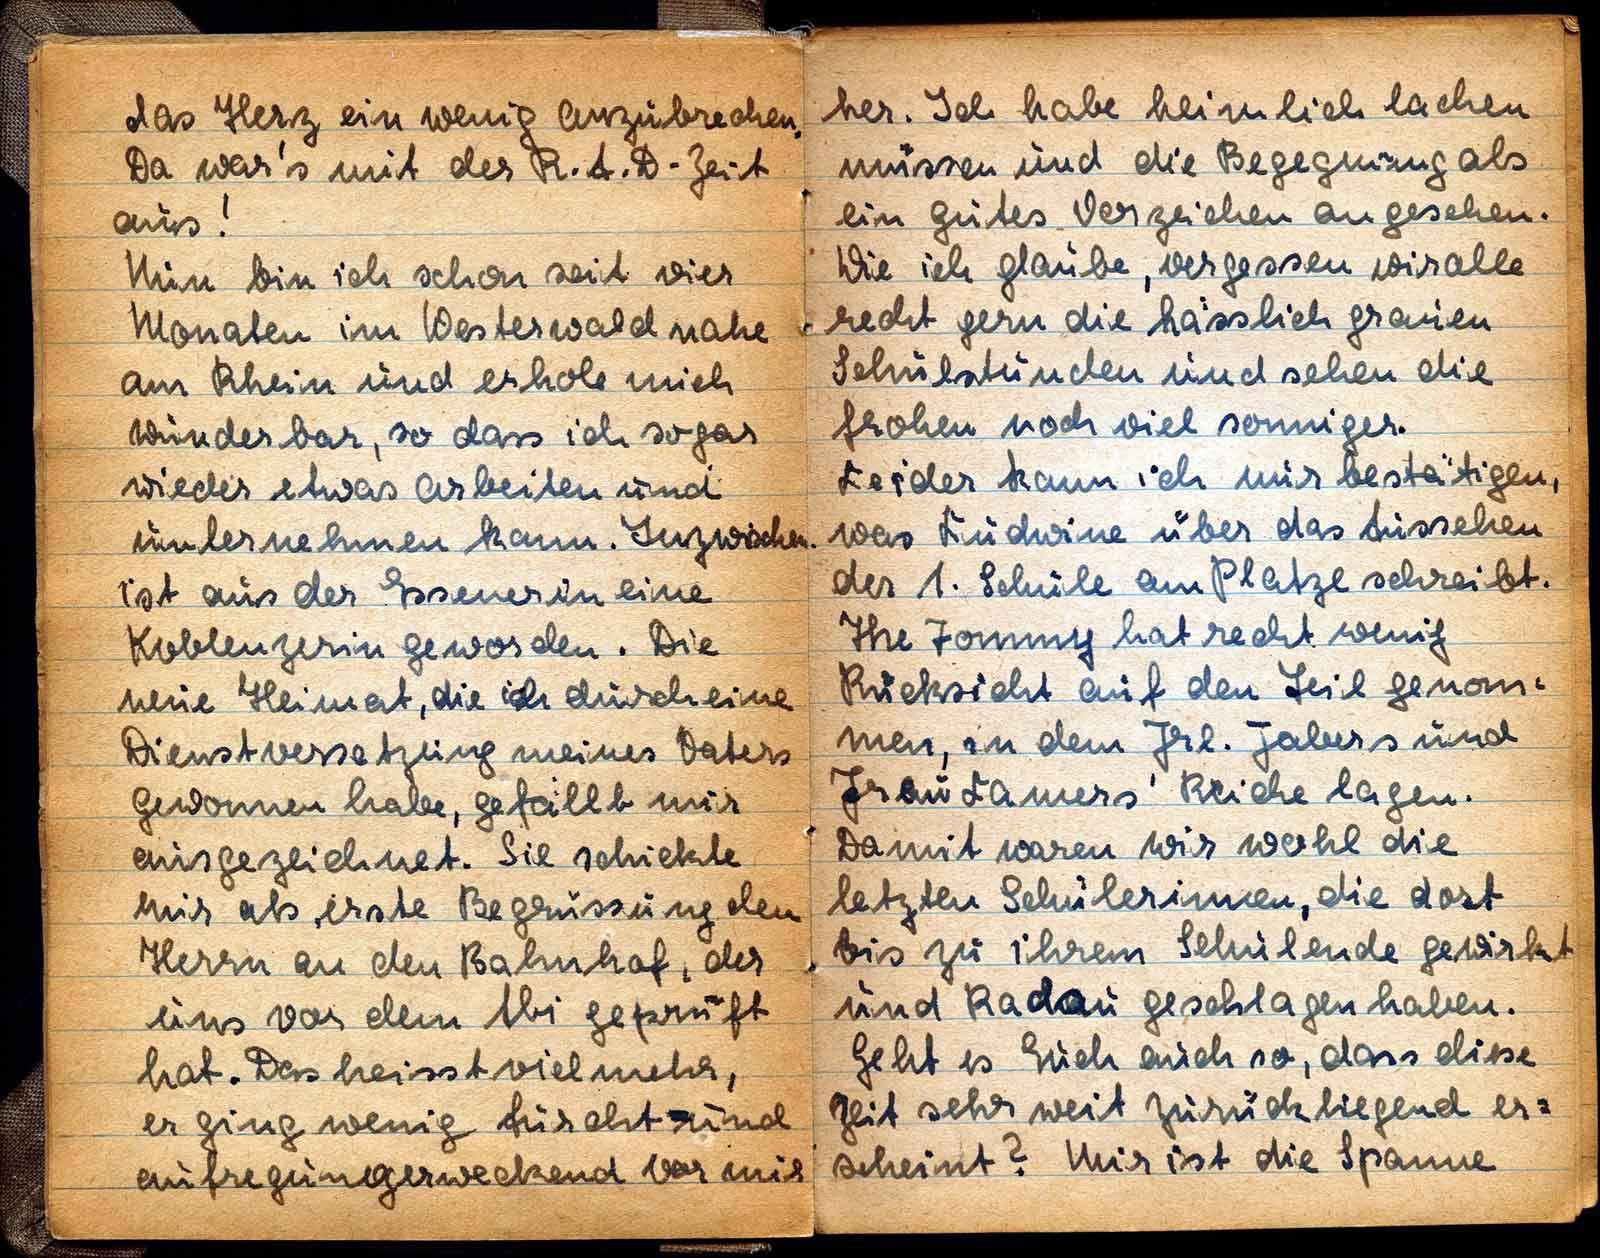 das Herz ein wenig anzubrechen.
Da war's mit der R.A.D-Zeit
aus!
Nun bin ich schon seit vier
Monaten im Westerwald nahe
am Rhein und erhole mich
wunderbar, so dass ich sogar
wieder etwas arbeiten und
unternehmen kann. Inzwischen
ist aus der Essenerin eine
Koblenzerin geworden. Die
neue Heimat, die ich durch eine
Dienstversetzung meines Vaters
gewonnen habe, gefällt mir
ausgezeichnet. Sie schickte
mir als erste Begrüssung den
Herrn an den Bahnhof, der
uns vor dem Abi geprüft
hat. Das heisst vielmehr,
er ging wenig furcht- und
aufregungerweckend vor mir
her. Ich habe heimlich lachen
müssen und die Begegnung als
ein gutes Vorzeichen angesehen.
Wie ich glaube, vergessen wir alle
recht gern die hässlich grauen
Schulstunden und sehen die
frohen noch viel sonniger.
Leider kann ich nur bestätigen,
was Ludwine über das Aussehen
der 1. Schule am Platze schreibt.
The Tommy hat recht wenig
Rücksicht auf den Teil genom-
men, in dem Frl. Fabers und
Frau Lamers' Reiche lagen.
Damit waren wir wohl die
letzten Schülerinnen, die dort
bis zu ihrem Schulende gewirkt
und Radau geschlagen haben.
Geht es Euch auch so, dass diese
Zeit sehr weit zurückliegend er=
scheint? Mir ist die Spanne